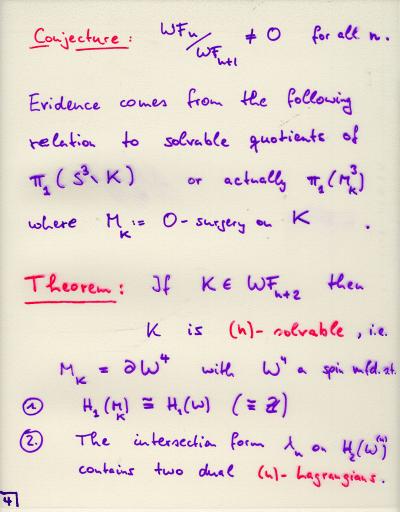 Conjecture: WFn/WFn+1 ≠ 0 for all n.
Evidence comes from the following
relation to solvable quotients of
π₁(S³∖K) or actually π₁(M³_K)
where M_K := 0-surgery on K.
Theorem: If K ∈ WF_{n+2} then
K is (n)-solvable, i.e.
M_K = ∂W⁴ with W⁴ a spin mfd. s.t.
① H₁(M_K) ≅ H₁(W) (≅ ℤ)
②. The intersection form λ_n on H₂(W^{(n)})
contains two dual (n)-Lagrangians.
4